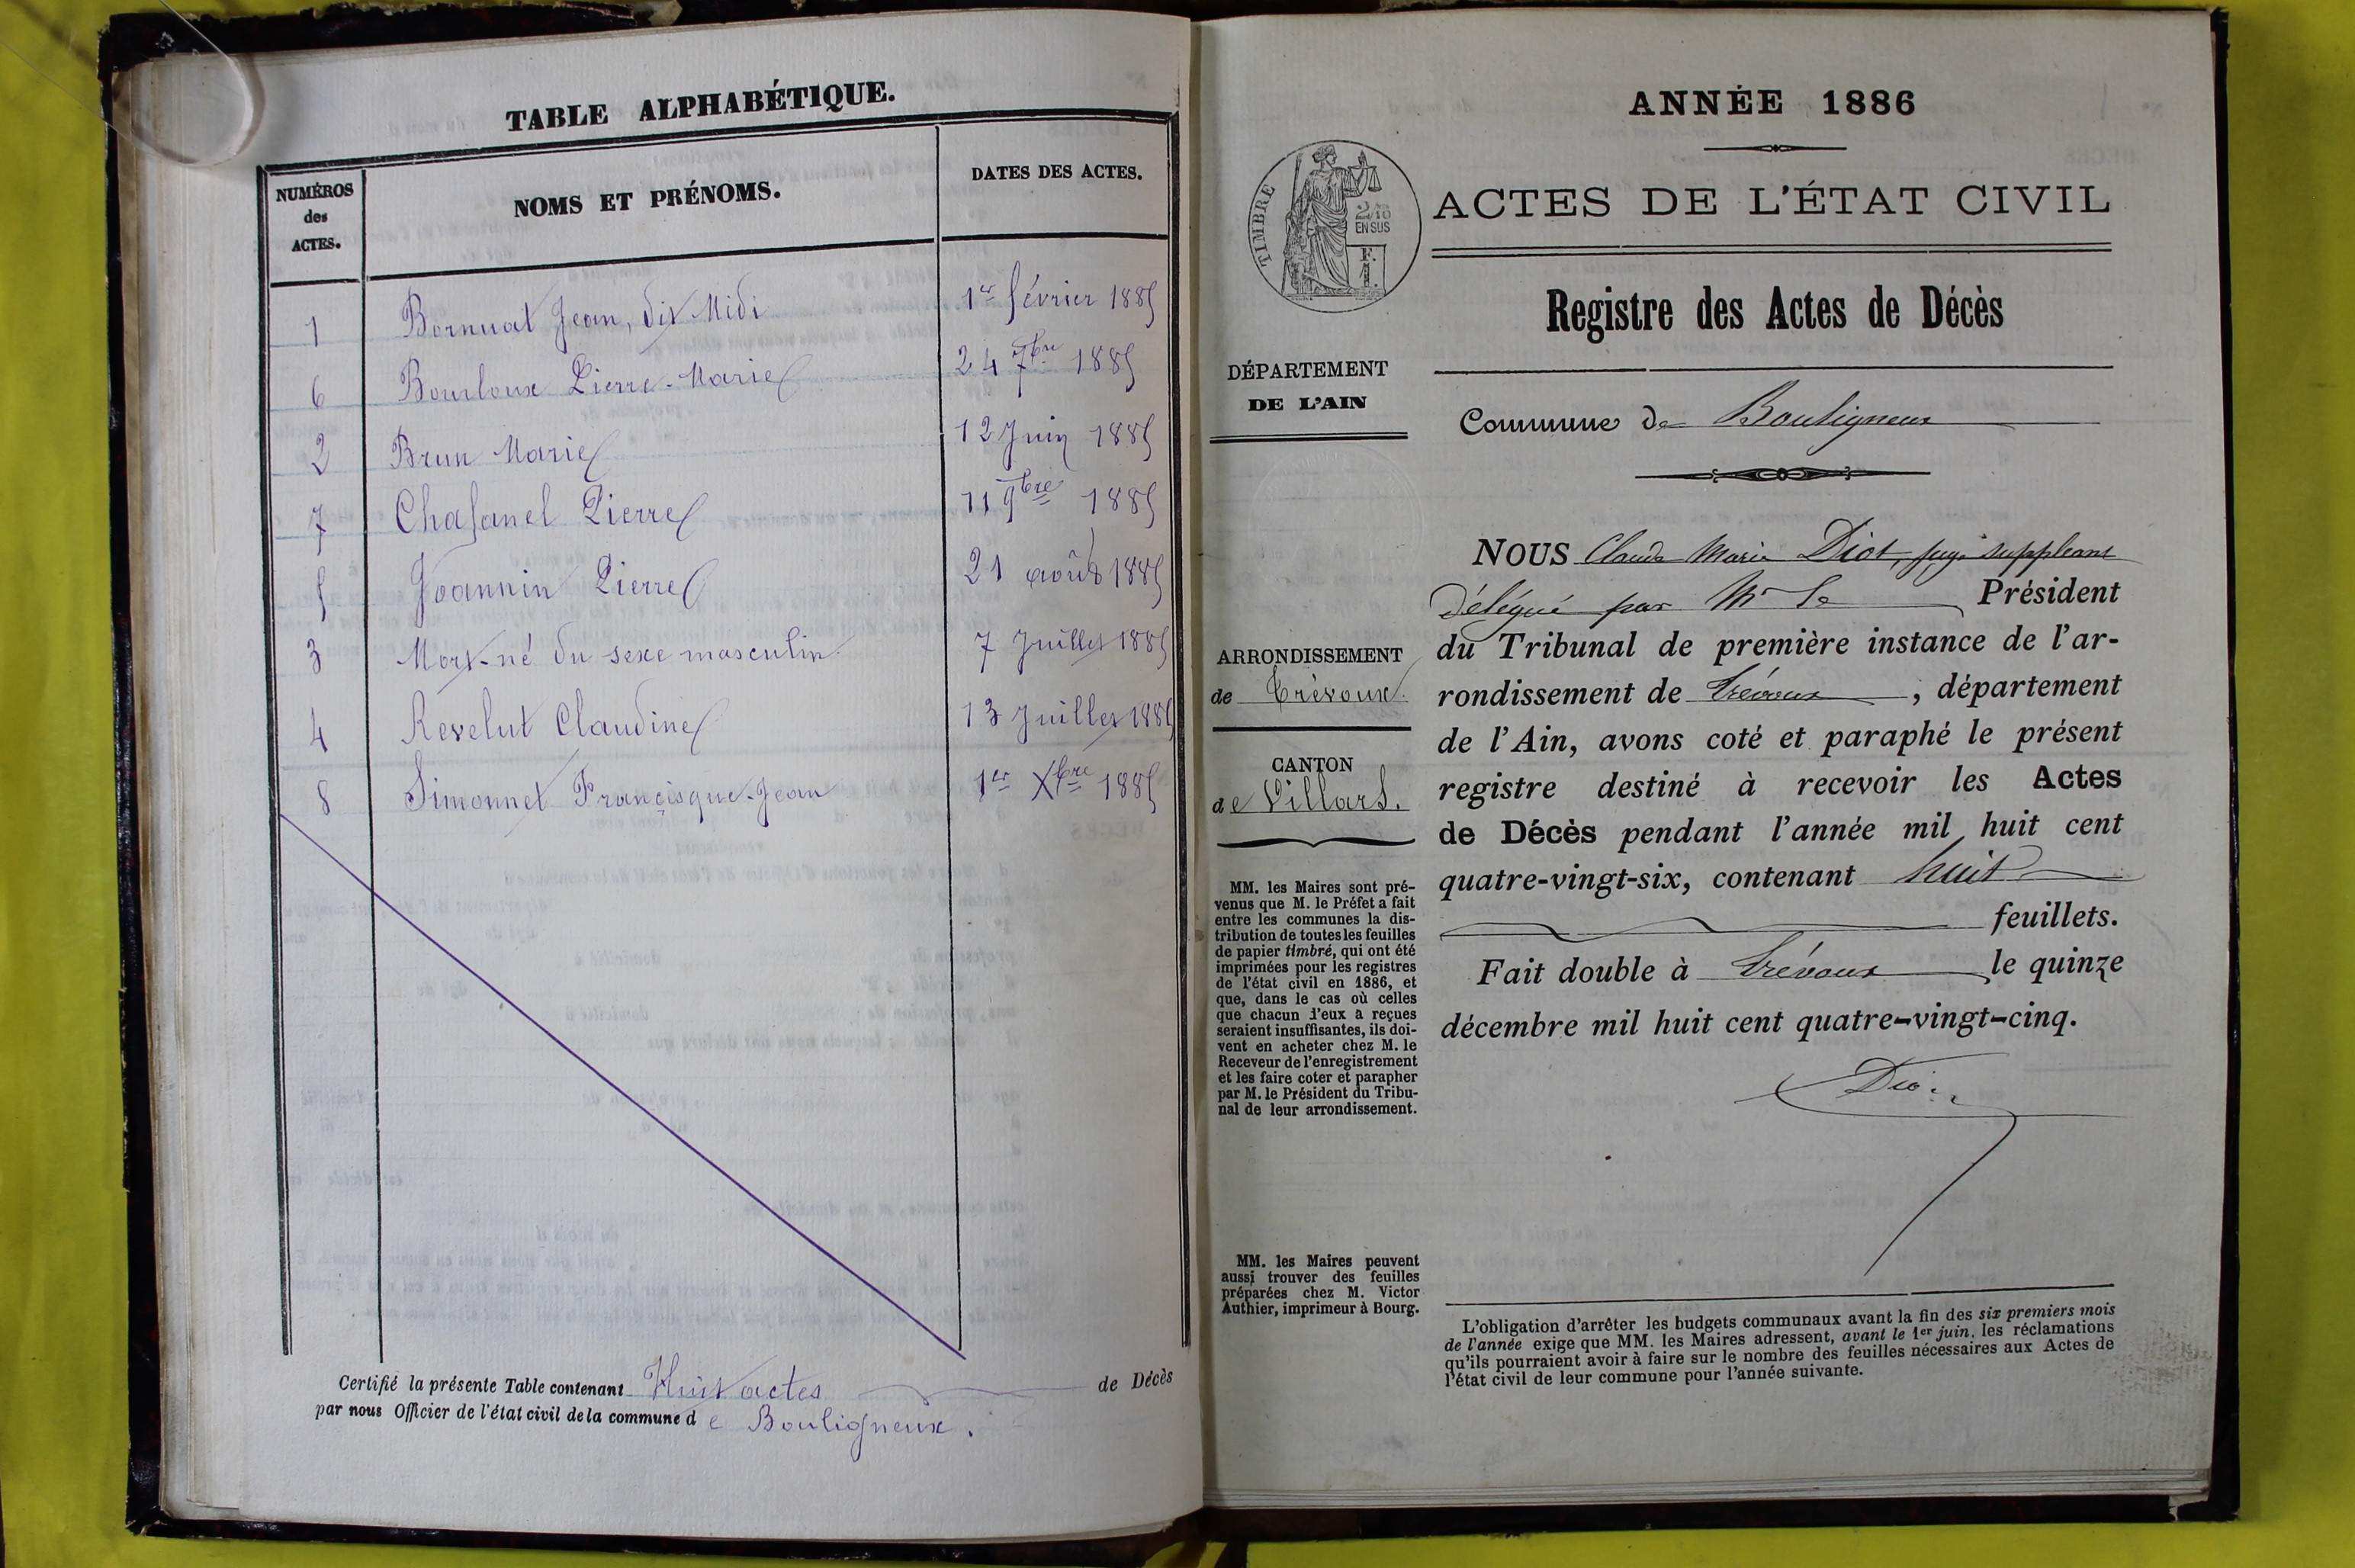 TABLE ALPHABÉTIQUE.
NUMÉROS des ACTES. NOMS ET PRÉNOMS. DATES DES ACTES.
1 Bornuat Jean, dit Midi 1er février 1885
6 Bourloux Pierre-Marie 24 7bre 1885
2 Brun Marie 12 Juin 1885
7 Chasanel Pierre 11 9bre 1885
5 Joannin Pierre 21 août 1885
3 Mort-né du sexe masculin 7 Juillet 1885
4 Revelut Claudine 13 Juillet 1885
8 Simonnet Françisque-Jean 1er Xbre 1885
Certifié la présente Table contenant Huit actes de Décès
par nous Officier de l'état civil de la commune de Bouligneux.
ANNÉE 1886
ACTES DE L'ÉTAT CIVIL
TIMBRE
2/10
EN SUS
F.
1.
Registre des Actes de Décès
DÉPARTEMENT
DE L'AIN
Commune de Bouligneux
ARRONDISSEMENT
de Trévoux.
CANTON
de Villars.
MM. les Maires sont pré-
venus que M. le Préfet a fait
entre les communes la dis-
tribution de toutes les feuilles
de papier timbré, qui ont été
imprimées pour les registres
de l'état civil en 1886, et
que, dans le cas où celles
que chacun d'eux a reçues
seraient insuffisantes, ils doi-
vent en acheter chez M. le
Receveur de l'enregistrement
et les faire coter et parapher
par M. le Président du Tribu-
nal de leur arrondissement.
MM. les Maires peuvent
aussi trouver des feuilles
préparées chez M. Victor
Authier, imprimeur à Bourg.
NOUS Claude Marie Diot, juge suppléant
délégué par Mr le Président
du Tribunal de première instance de l'ar-
rondissement de Trévoux, département
de l'Ain, avons coté et paraphé le présent
registre destiné à recevoir les Actes
de Décès pendant l'année mil huit cent
quatre-vingt-six, contenant huit
feuillets.
Fait double à Trévoux le quinze
décembre mil huit cent quatre-vingt-cinq.
Diot
L'obligation d'arrêter les budgets communaux avant la fin des six premiers mois
de l'année exige que MM. les Maires adressent, avant le 1er juin, les réclamations
qu'ils pourraient avoir à faire sur le nombre des feuilles nécessaires aux Actes de
l'état civil de leur commune pour l'année suivante.